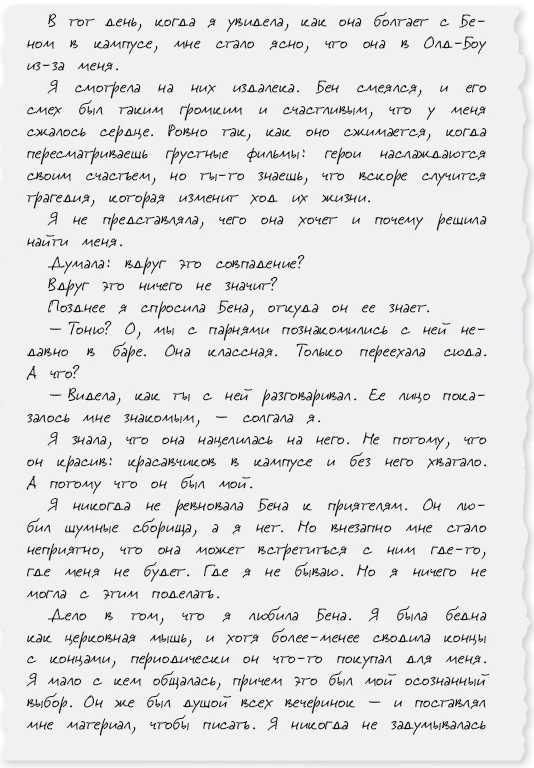 В тот день, когда я увидела, как она болтает с Бе-
ном в кампусе, мне стало ясно, что она в Олд-Боу
из-за меня.
Я смотрела на них издалека. Бен смеялся, и его
смех был таким громким и счастливым, что у меня
сжалось сердце. Ровно так, как оно сжимается, когда
пересматриваешь грустные фильмы: герои наслаждаются
своим счастьем, но ты-то знаешь, что вскоре случится
трагедия, которая изменит ход их жизни.
Я не представляла, чего она хочет и почему решила
найти меня.
Думала: вдруг это совпадение?
Вдруг это ничего не значит?
Позднее я спросила Бена, откуда он ее знает.
— Тоню? О, мы с парнями познакомились с ней не-
давно в баре. Она классная. Только переехала сюда.
А что?
— Видела, как ты с ней разговаривал. Ее лицо пока-
залось мне знакомым, — солгала я.
Я знала, что она нацелилась на него. Не потому, что
он красив: красавчиков в кампусе и без него хватало.
А потому что он был мой.
Я никогда не ревновала Бена к приятелям. Он лю-
бил шумные сборища, а я нет. Но внезапно мне стало
неприятно, что она может встретиться с ним где-то,
где меня не будет. Где я не бываю. Но я ничего не
могла с этим поделать.
Дело в том, что я любила Бена. Я была бедна
как церковная мышь, и хотя более-менее сводила концы
с концами, периодически он что-то покупал для меня.
Я мало с кем общалась, причем это был мой осознанный
выбор. Он же был душой всех вечеринок — и поставлял
мне материал, чтобы писать. Я никогда не задумывалась